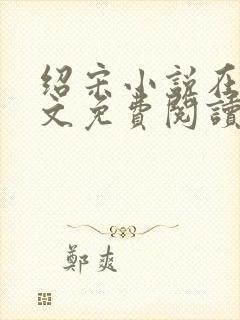 绍宋小说在
文免費閱讀
鄭爽